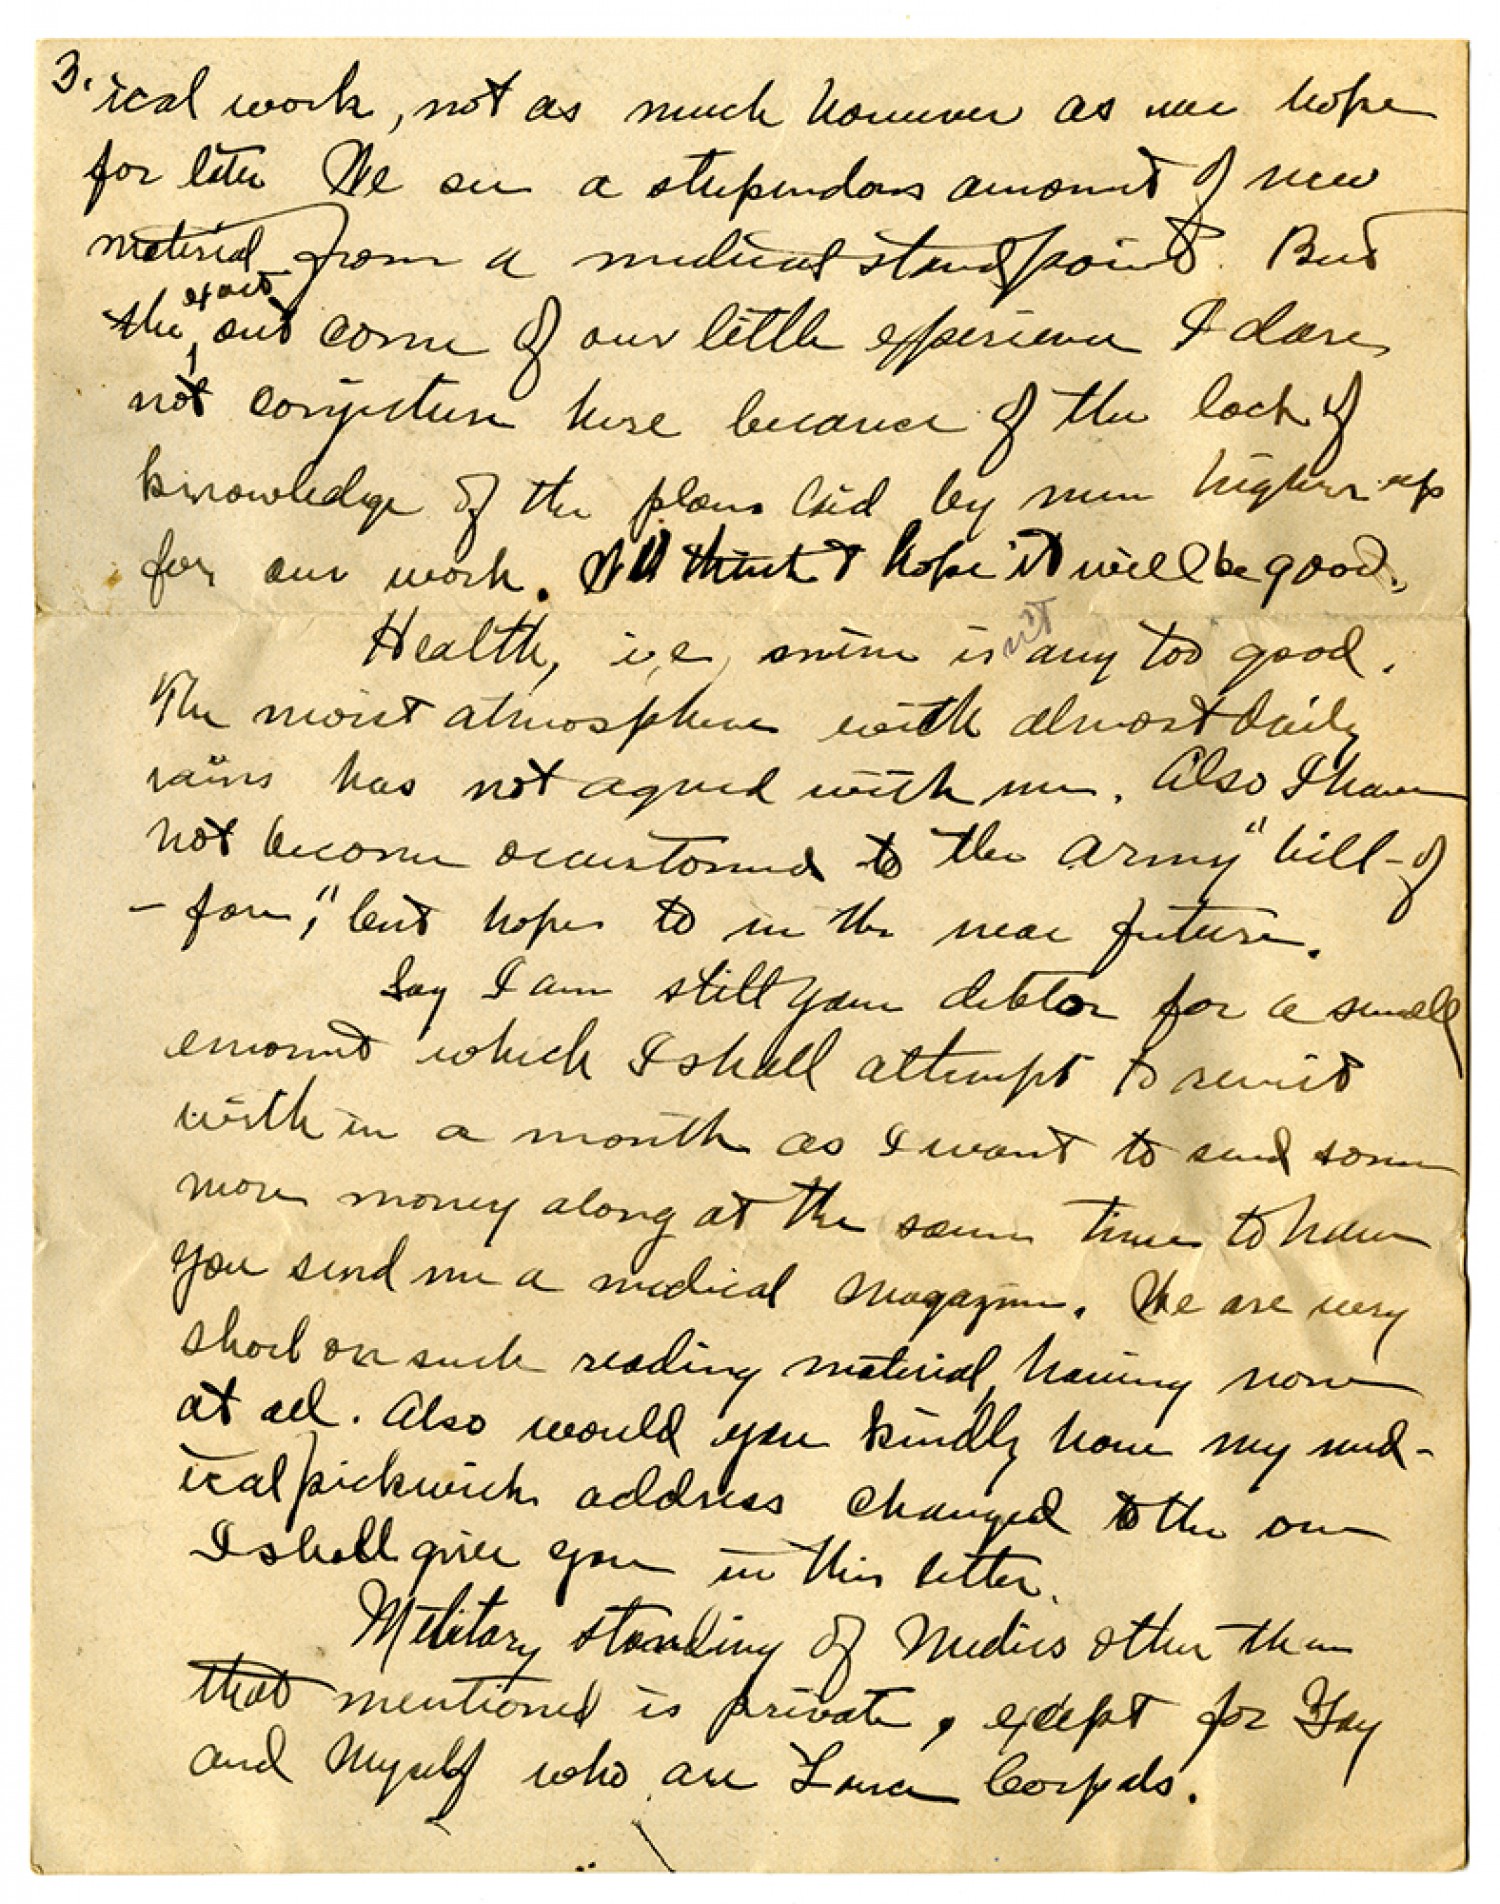 3. ical work, not as much however as we hope
for later We see a stupendous amount of new
material from a medical standpoint. But
exact
the out come of our little experience I dare
not conjecture here because of the lack of
knowledge of the plans laid by men higher up
for our work. think & hope it will be good.
Health, i,e, mine is nit any too good.
The moist atmosphere with almost daily
rains has not agreed with me. Also I have
not become accustomed to the army "bill-of
- fare," but hope to in the near future.
Say I am still your debtor for a small
amount which I shall attempt to remit
with in a month as I want to send some
more money along at the same time to have
you send me a medical magazine. We are very
short on such reading material, having none
at all. Also would you kindly have my med-
ical pickwick address changed to the one
I shall give you in this letter.
Military standing of Medics other than
that mentioned is private, except for Gay
and Myself who are Lance Corpals.